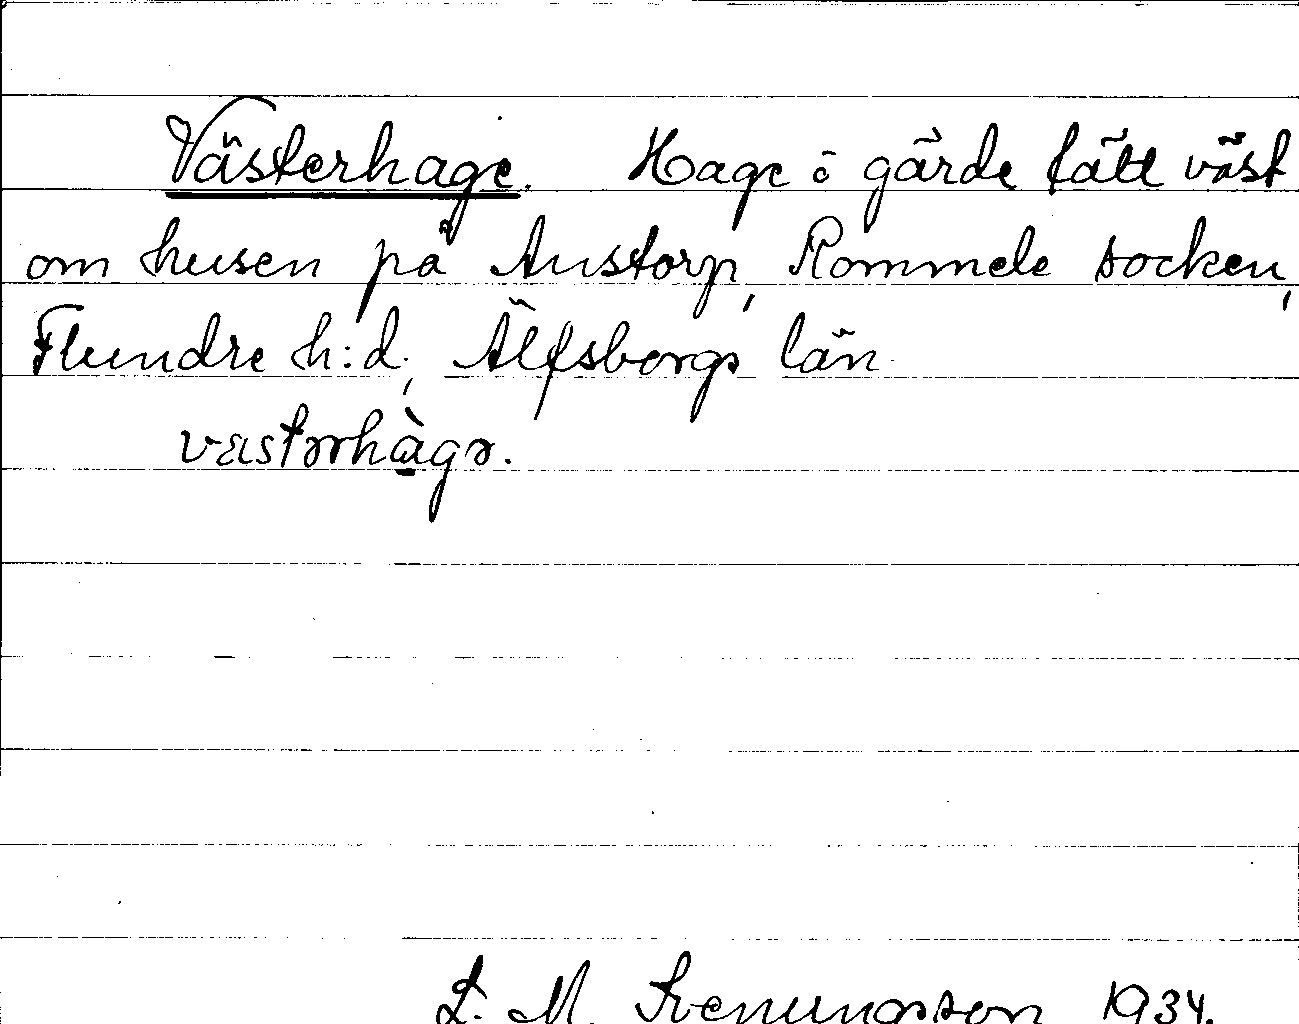 Västerhage. Hage i gärde tätt väst
om husen på Anstorp, Rommele socken,
Flundre h:d, Älfsborgs län.
væstərhàgə.
L. M. Svenungsson 1934.